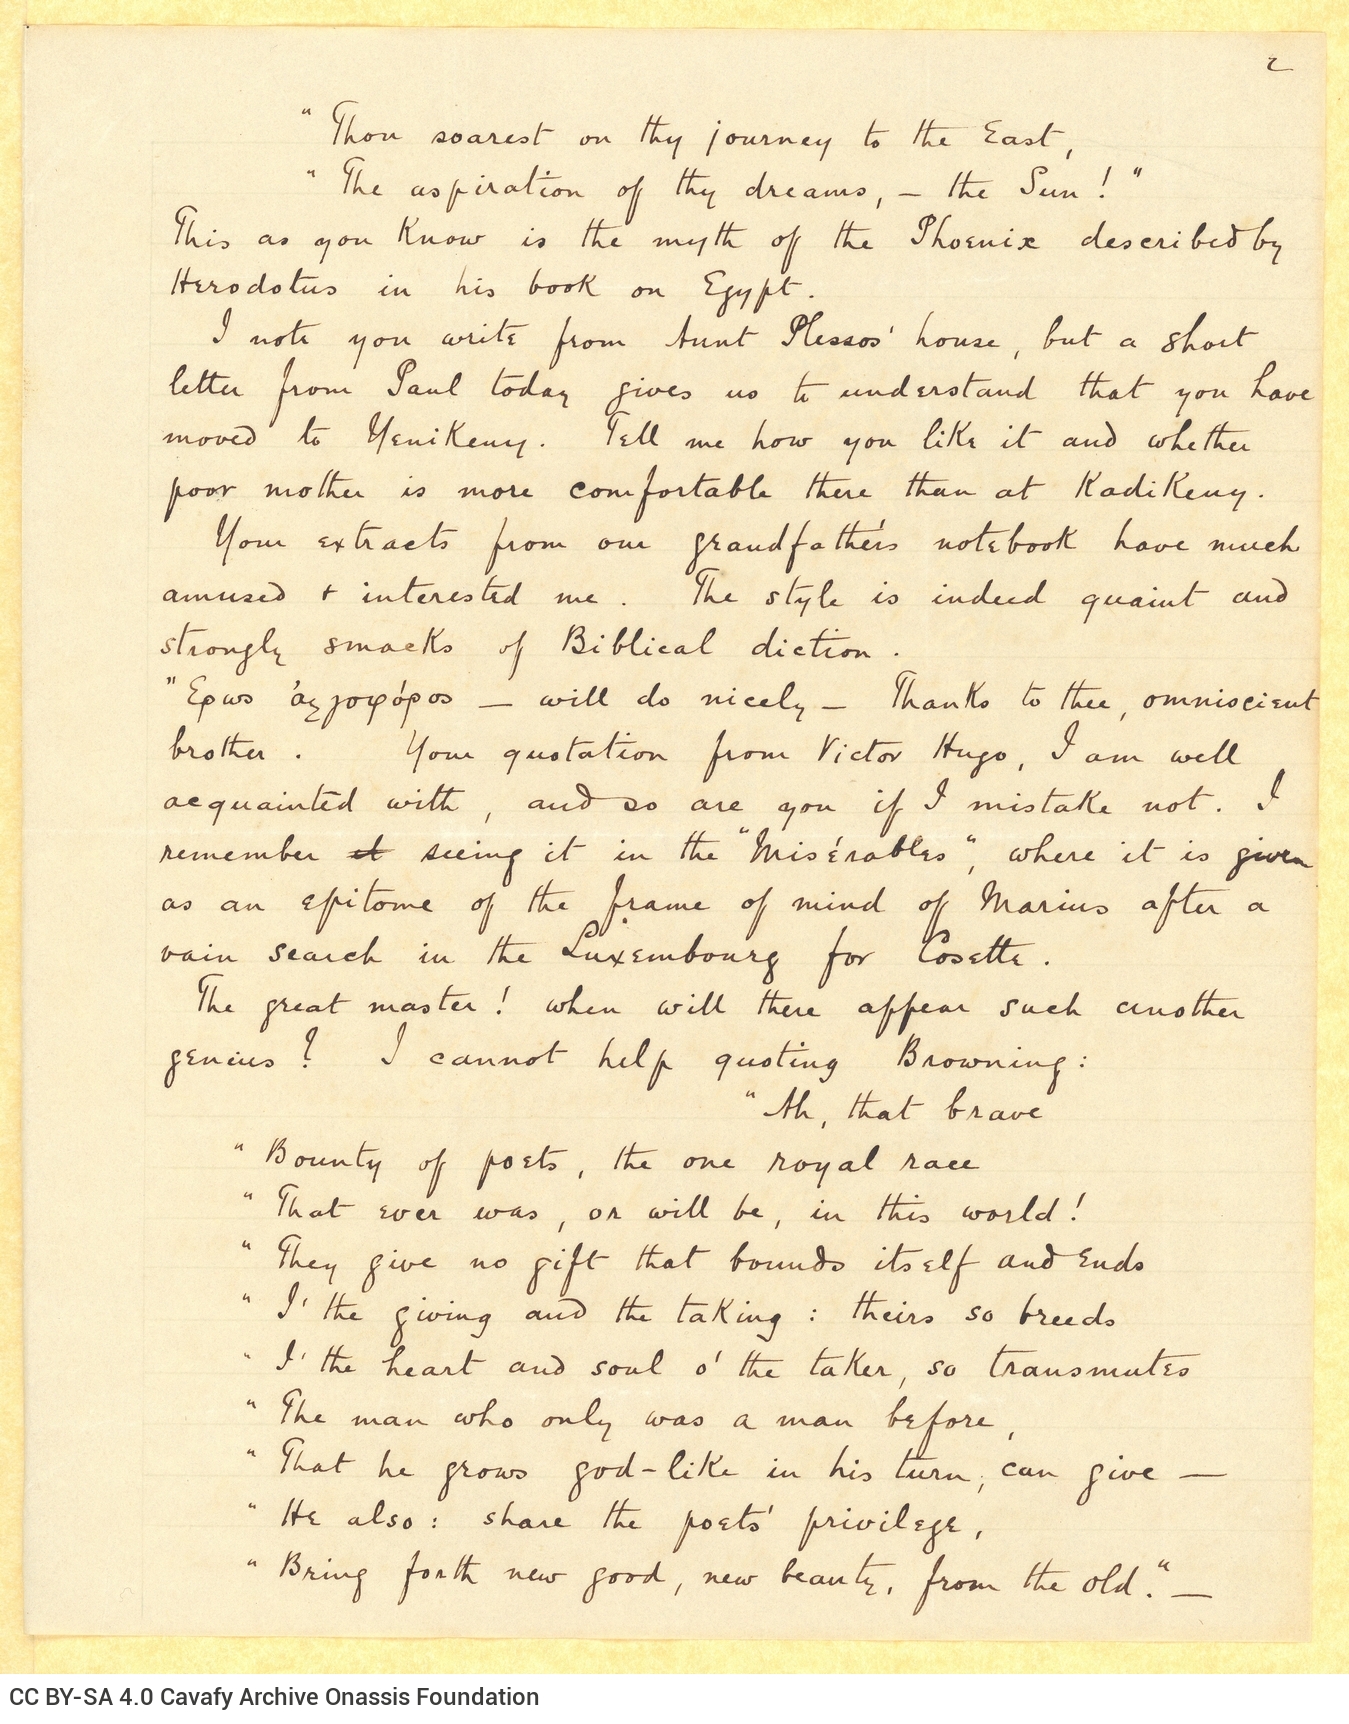 2
"Thou soarest on thy journey to the East,
"The aspiration of thy dreams, — the Sun!"
This as you know is the myth of the Phoenix described by
Herodotus in his book on Egypt.
I note you write from Aunt Plessos' house, but a short
letter from Paul today gives us to understand that you have
moved to Yenikeuy. Tell me how you like it and whether
poor mother is more comfortable there than at Kadikeuy.
Your extracts from our grandfather's notebook have much
amused + interested me. The style is indeed quaint and
strongly smacks of Biblical diction.
"Ερως — will do nicely — Thanks to thee, omniscient
brother. Your quotation from Victor Hugo, I am well
acquainted with, and so are you if I mistake not. I
remember it seeing it in the "Misérables", where it is given
as an epitome of the frame of mind of Marius after a
vain search in the Luxembourg for Cosette.
The great master! when will there appear such another
genius? I cannot help quoting Browning:
"Ah, that brave
"Bounty of poets, the one royal race
"That ever was, or will be, in this world!
"They give no gift that bounds itself and ends
"I' the giving and the taking: theirs so breeds
"I' the heart and soul o' the taker, so transmutes
"The man who only was a man before,
"That he grows god-like in his turn, can give —
"He also: share the poets' privilege,
"Bring forth new good, new beauty, from the old." —
CC BY-SA 4.0 Cavafy Archive Onassis Foundation